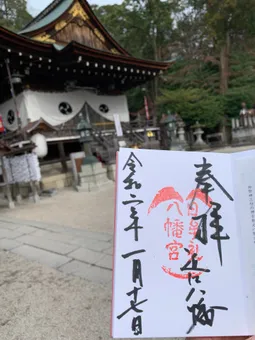 奉拝
近江八幡
日牟礼
八幡宮
令和二年一月十七日